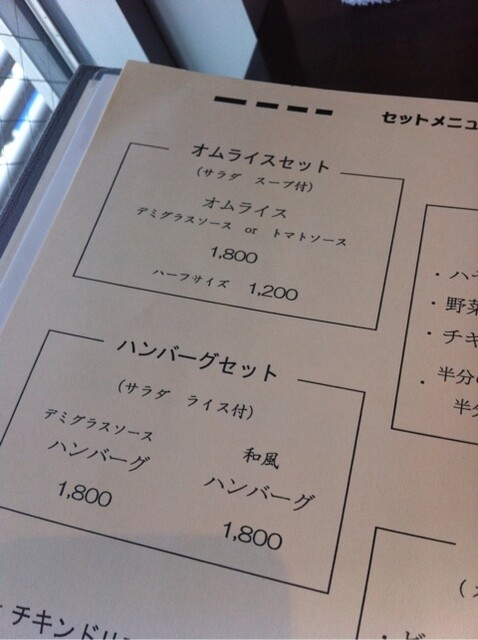 セットメニュ
オムライスセット
（サラダ　スープ付）
オムライス
デミグラスソース　or　トマトソース
1,800
ハーフサイズ　1,200
ハンバーグセット
（サラダ　ライス付）
デミグラスソース
ハンバーグ
1,800
和風
ハンバーグ
1,800
・ハ
・野菜
・チキ
・半分
半分
チキンドリ